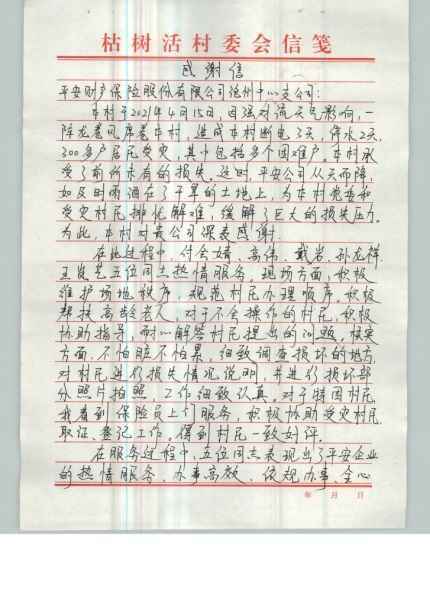 枯树活村委会信笺
感谢信
平安财产保险股份有限公司沧州中心支公司:
本村于2021年4月15日,因强对流天气影响,一
阵龙卷风席卷本村,造成本村断电3天,停水2天,
300多户居民受灾,其中包括多个困难户。本村承
受了前所未有的损失。这时平安公司从天而降,
如及时雨洒在了干旱的土地上,为本村党委和
受灾村民排忧解难,缓解了巨大的损失压力。
为此,本村对贵公司深表感谢
在此过程中,付会婧、高伟、戴岩、孙龙祥、
王 五位同志热情服务,现场方面,积极
维护场地秩序,规范村民办理顺序,积极
帮扶高龄老人,对于不会操作的村民,积极
协助指导,耐心解答村民提出的问题。核实
方面,不怕脏不怕累,细致调查损坏的地方
对村民进行损失情况说明,并进行损坏部
分照片拍照,工作细致认真。对于特困村民,
我看到保险员上门服务,积极协助受灾村民
取证、登记工作。得到村民一致好评。
在服务过程中,五位同志表现出了平安企业
的热情服务、办事高效、依规办事、全心
年 月 日